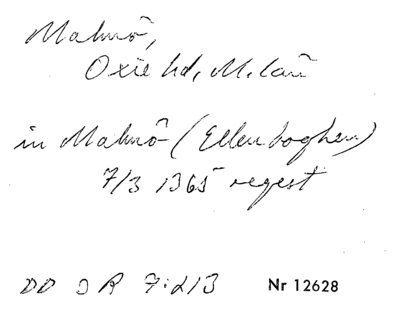 Malmö,
Oxie hd, M.län
in Malmö (Ellenboghen)
7/3 1365 regest
DD 3 R 7:213 Nr 12628